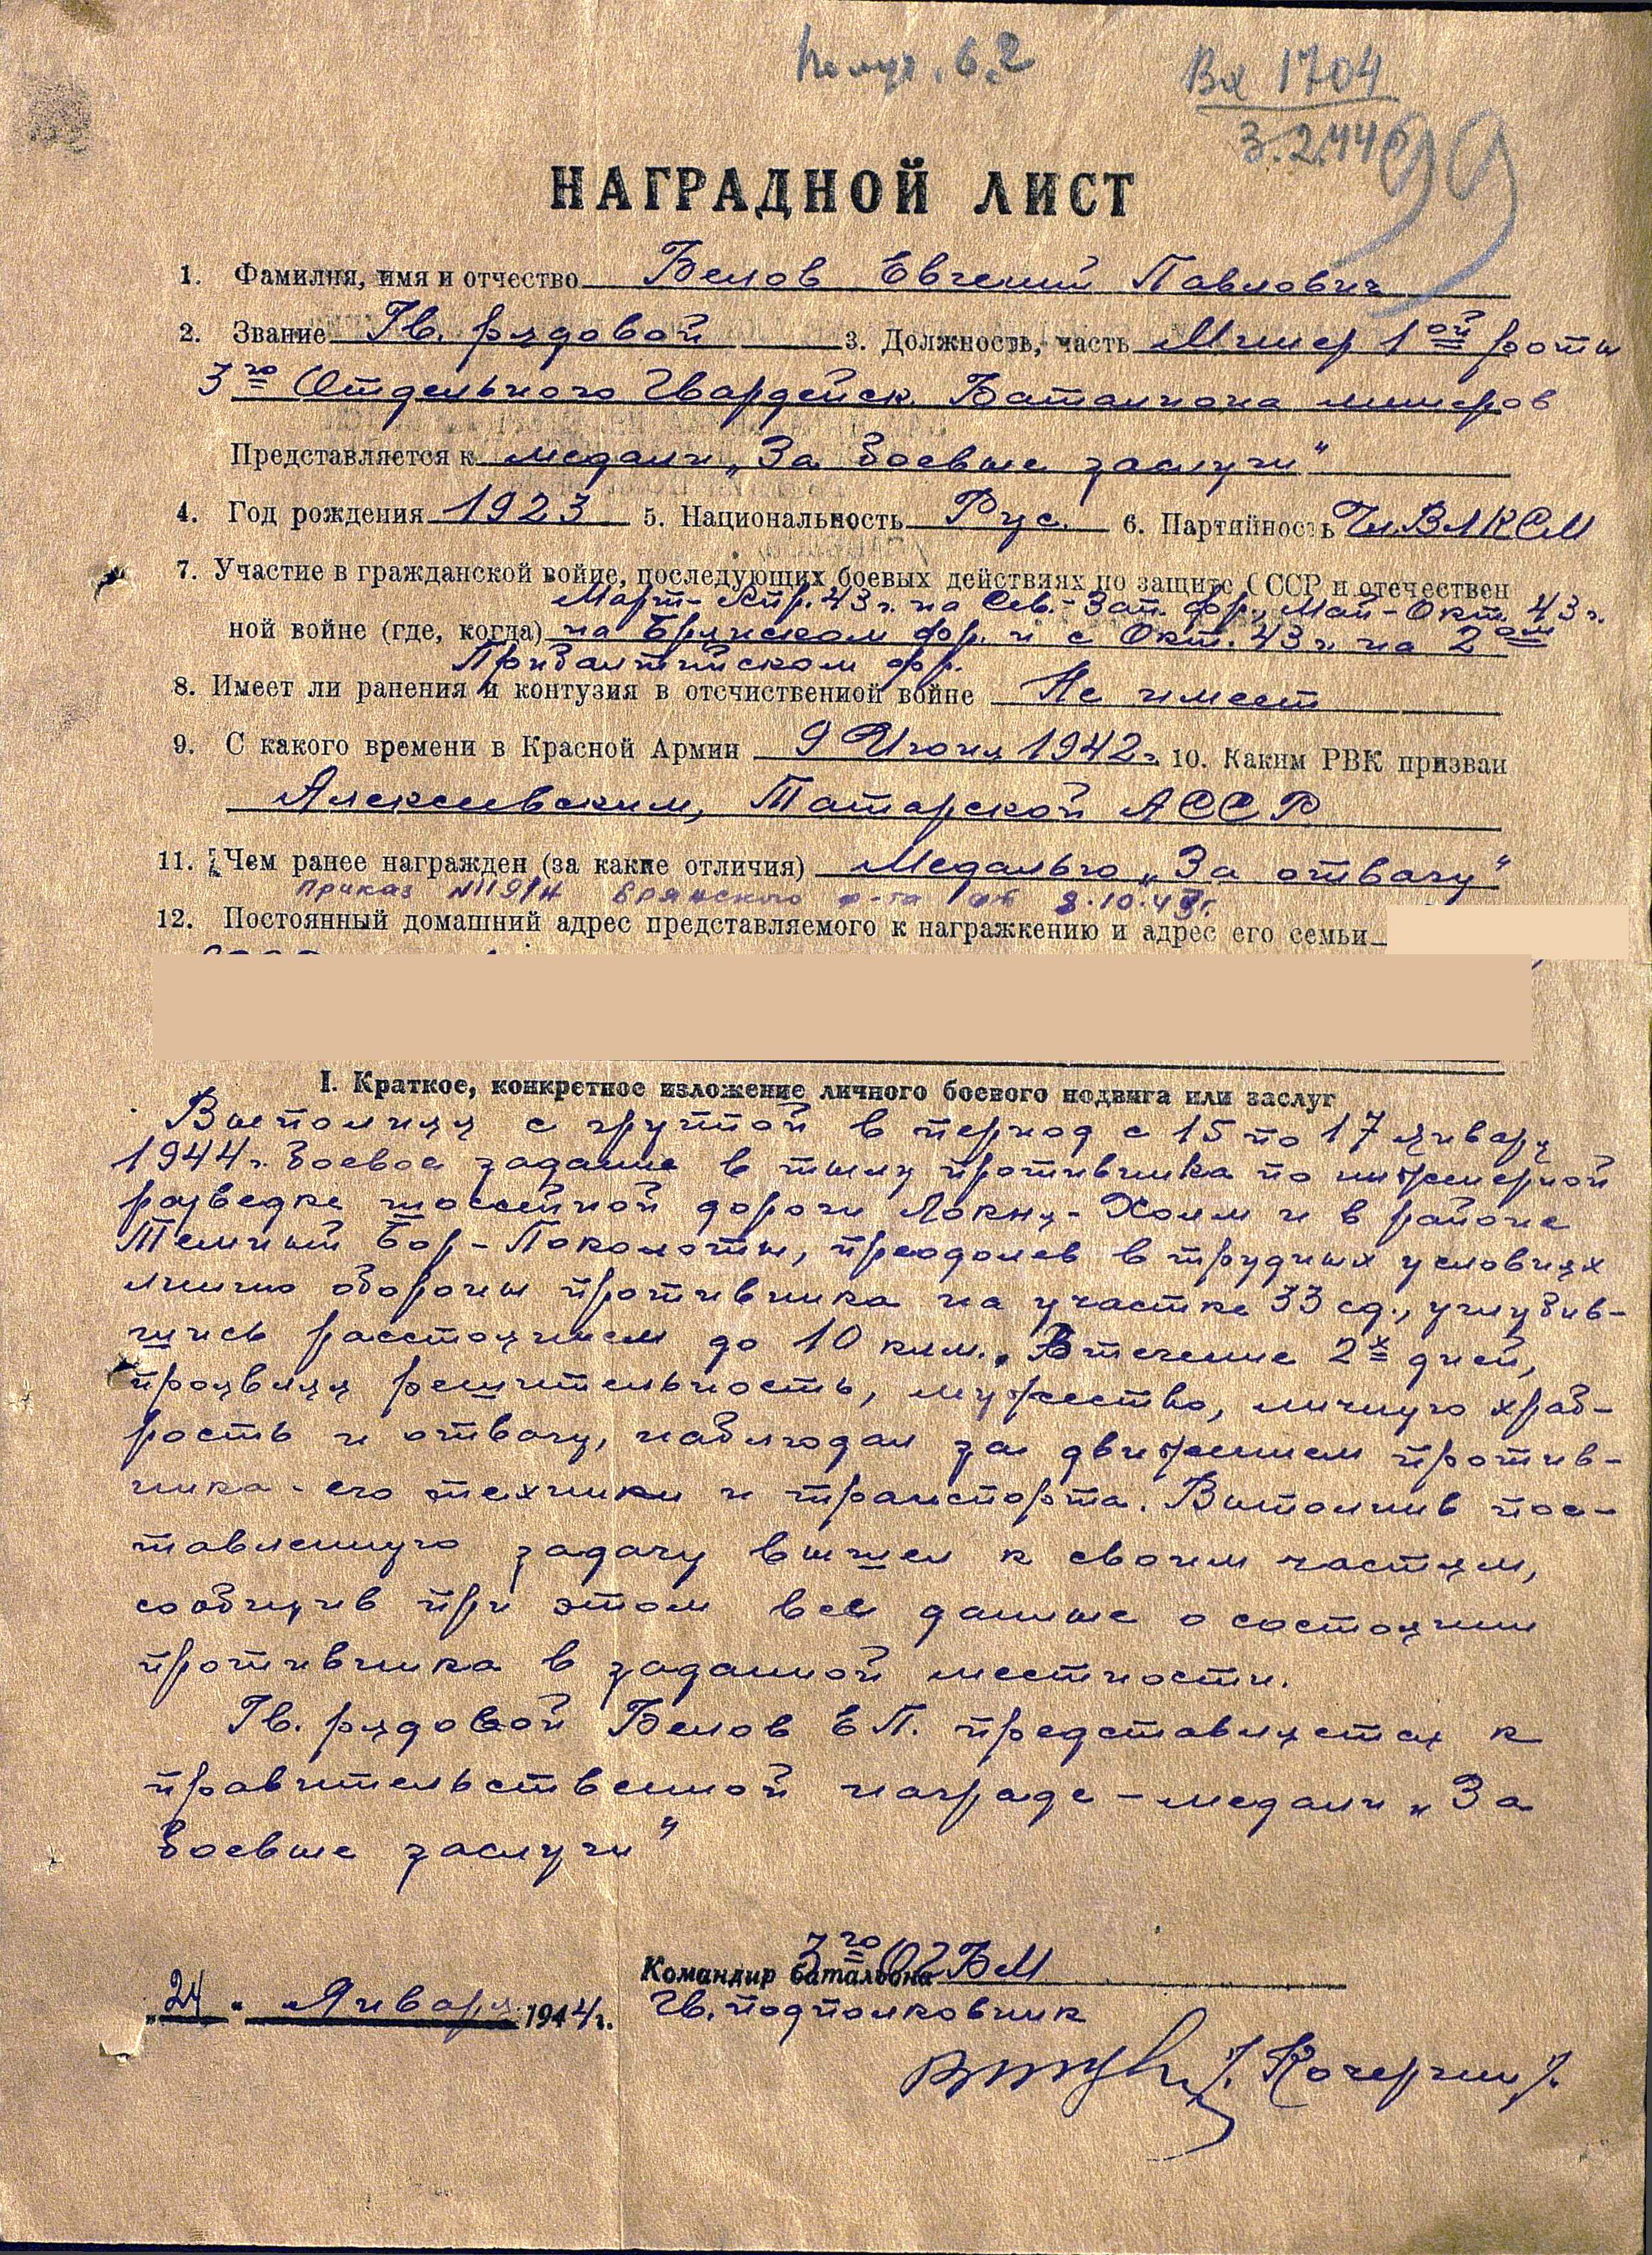 Получ. 6.2
Вх 1704
3.2.44
99
НАГРАДНОЙ ЛИСТ
1. Фамилия, имя и отчество Белов Евгений Павлович
2. Звание Гв. рядовой 3. Должность, часть Минер 1ой роты
3го Отдельного Гвардейск. Батальона минеров
Представляется к медали „За боевые заслуги"
4. Год рождения 1923 5. Национальность Рус. 6. Партийность Чл. ВЛКСМ
7. Участие в гражданской войне, последующих боевых действиях по защите СССР и отечествен
Март-Апр. 43 г. на Сев.-Зап. фр., Май-Окт. 43 г.
ной войне (где, когда) на Брянском фр. и с Окт. 43 г. на 2ом
Прибалтийском фр.
8. Имеет ли ранения и контузия в отсчиственной войне Не имеет
9. С какого времени в Красной Армии 9 Июня 1942 г. 10. Каким РВК призван
Алексеевским, Татарской АССР
11. Чем ранее награжден (за какие отличия) Медалью „За отвагу"
приказ №119/н Брянского ф-та от 8.10.43г.
12. Постоянный домашний адрес представляемого к награжкению и адрес его семьи
I. Краткое, конкретное изложение личного боевого подвига или заслуг
Выполняя с группой в период с 15 по 17 января
1944 г. боевое задание в тылу противника по инженерной
разведке шоссейной дороги Локня-Холм и в районе
Темный Бор-Поколоты, преодолев в трудных условиях
линию обороны противника на участке 33 сд., углубив-
шись расстоянием до 10 клм. В течение 2х дней,
проявляя решительность, мужество, личную храб-
рость и отвагу, наблюдал за движением против-
ника - его техники и транспорта. Выполнив пос-
тавленную задачу вышел к своим частям,
сообщив при этом все данные о состоянии
противника в заданной местности.
Гв. рядовой Белов Е.П. представляется к
правительственной награде - медали „За
боевые заслуги"
3го ОГБМ
Командир батальона
„24" Января 1944 г. Гв. подполковник
/Кочергин/.